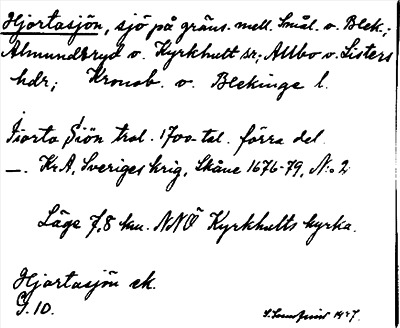 Hjortasjön, sjö på gräns. mell. Smål. o. Blek.;
Almundsryd o. Kyrkhult sr; Allbo o. Listers
hdr; Kronob. o. Blekinge l.
Iiorta Siön trol. 1700-tal. förra del.
—. Kr.A, Sveriges krig, Skåne 1676-79, N:o 2
Läge 7,8 km. NNÖ Kyrkhults kyrka.
Hjortasjön ek.
G. 10.